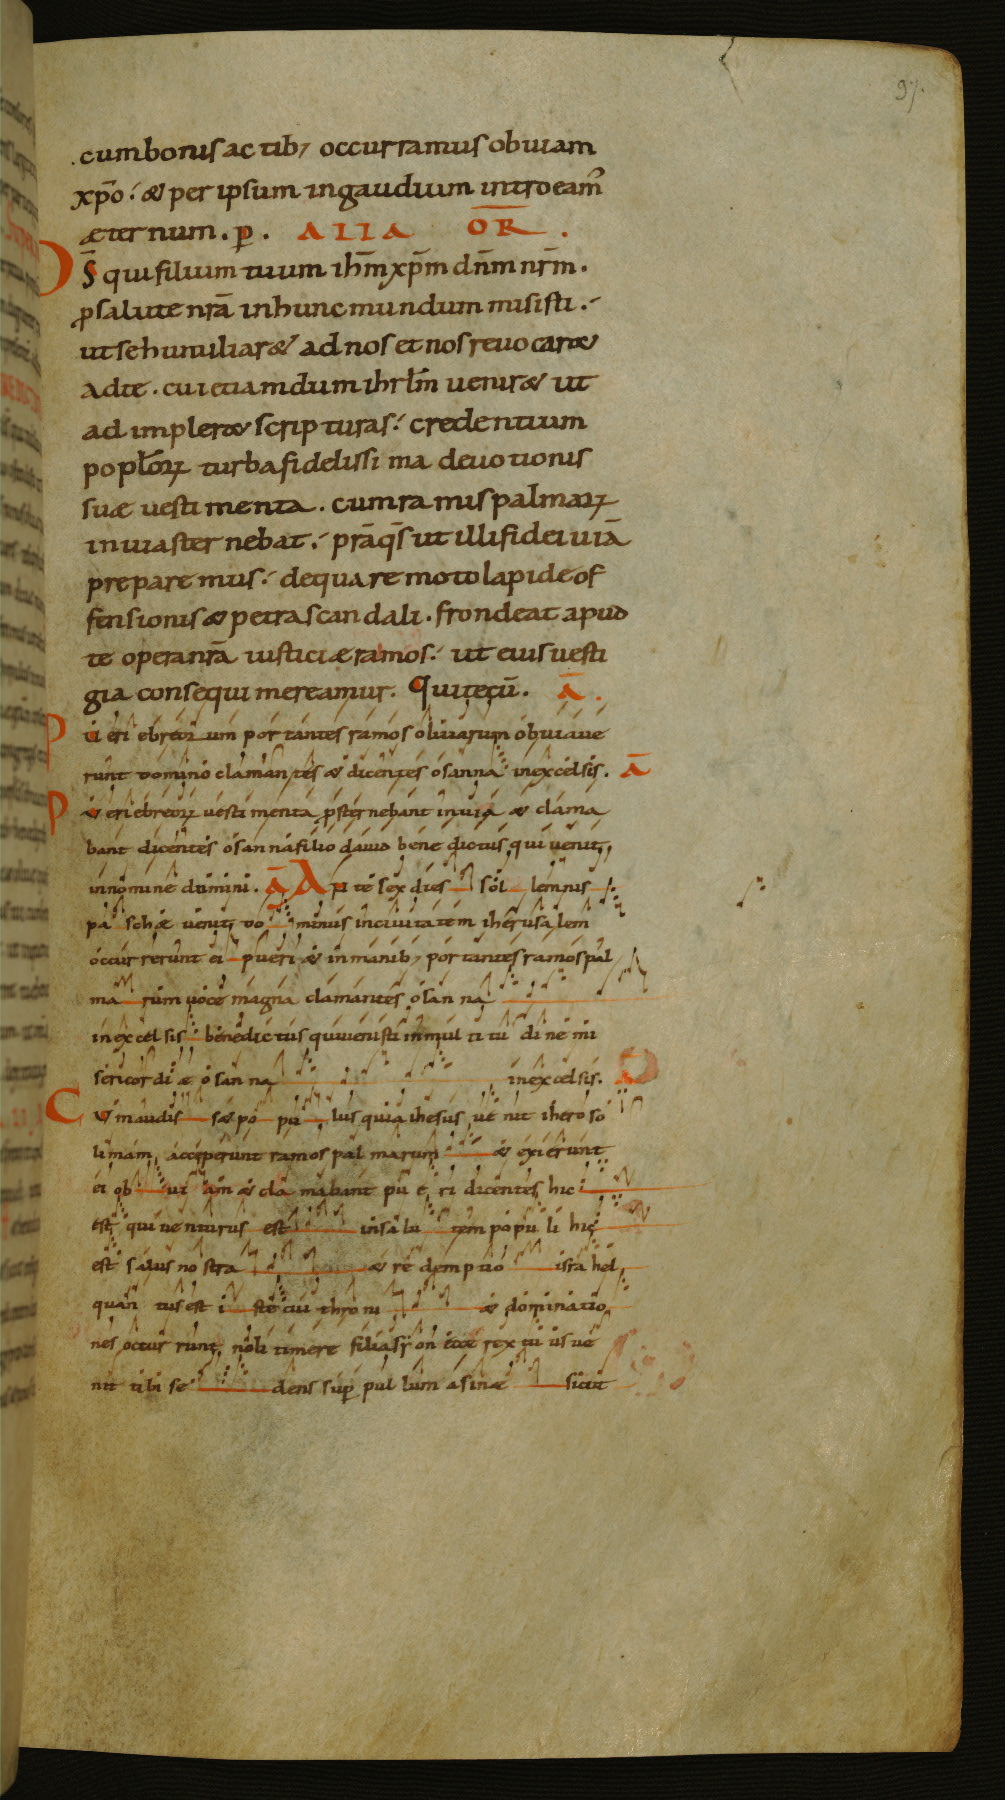 97.
cum bonis actib; occurramus obuiam
xp̄o. & per ipsum in gaudium introeam᷒
æternum. p̄. ALIA OR̄.
D̄s qui filium tuum ihm̄ xp̄m dn̄m nr̄m.
ꝓ salute nrā in hunc mundum misisti.
ut se humiliar& ad nos et nos reuocar&
ad te. cui etiam dum ihrlm̄ uenir& ut
adimpler& scripturas. credentium
popl̄oꝝ turba fidelissima deuotionis
suæ uestimenta. cum ramis palmaꝝ
in uia sternebat. p̄rā q̄s ut illi fidei uiā
preparemus. de qua remoto lapide of
fensionis & petra scandali. frondeat apud
te opera nrā iusticiæ ramos. ut eius uesti
gia consequi mereamur. Qui tecū. Ā.
Pueri ebreorum portantes ramos oliuarum obuiaue
runt domino clamantes & dicentes osanna in excelsis. Ā
Pueri ebreoꝝ uestimenta ꝓsternebant in uia & clama
bant dicentes osanna filio dauid benedictus qui uenit
in nomine domini. Ā Ante sex dies sollemnis
paschæ uenit dominus in ciuitatem iherusalem
occurrerunt ei pueri & in manib; portantes ramos pal
marum uoce magna clamantes osanna
in excelsis benedictus qui uenisti in multitudine mi
sericordiæ osanna in excelsis. A
Cum audisset populus quia ihesus uenit iheroso
limam acceperunt ramos palmarum & exierunt
ei obuiam & clamabant pueri dicentes hic
est qui uenturus est in salutem populi hic
est salus nostra & redemptio israhel
quantus est iste cui throni & dominatio
nes occurrunt noli timere filia syon ecce rex tuus ue
nit tibi sedens sup̄ pullum asinæ sicut